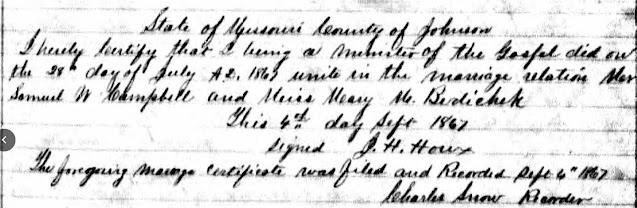 State of Missouri County of Johnson
I hereby Certify that I being a minister of the Gospel did on
the 28th day of July A.D. 1867 unite in the marriage relation Mr
Samuel W Campbell and Miss Mary M. Bedichek
This 4th day Sept 1867
Signed J. H. Houx
The foregoing marriage certificate was filed and Recorded Sept 4th 1867
Charles Snow Recorder